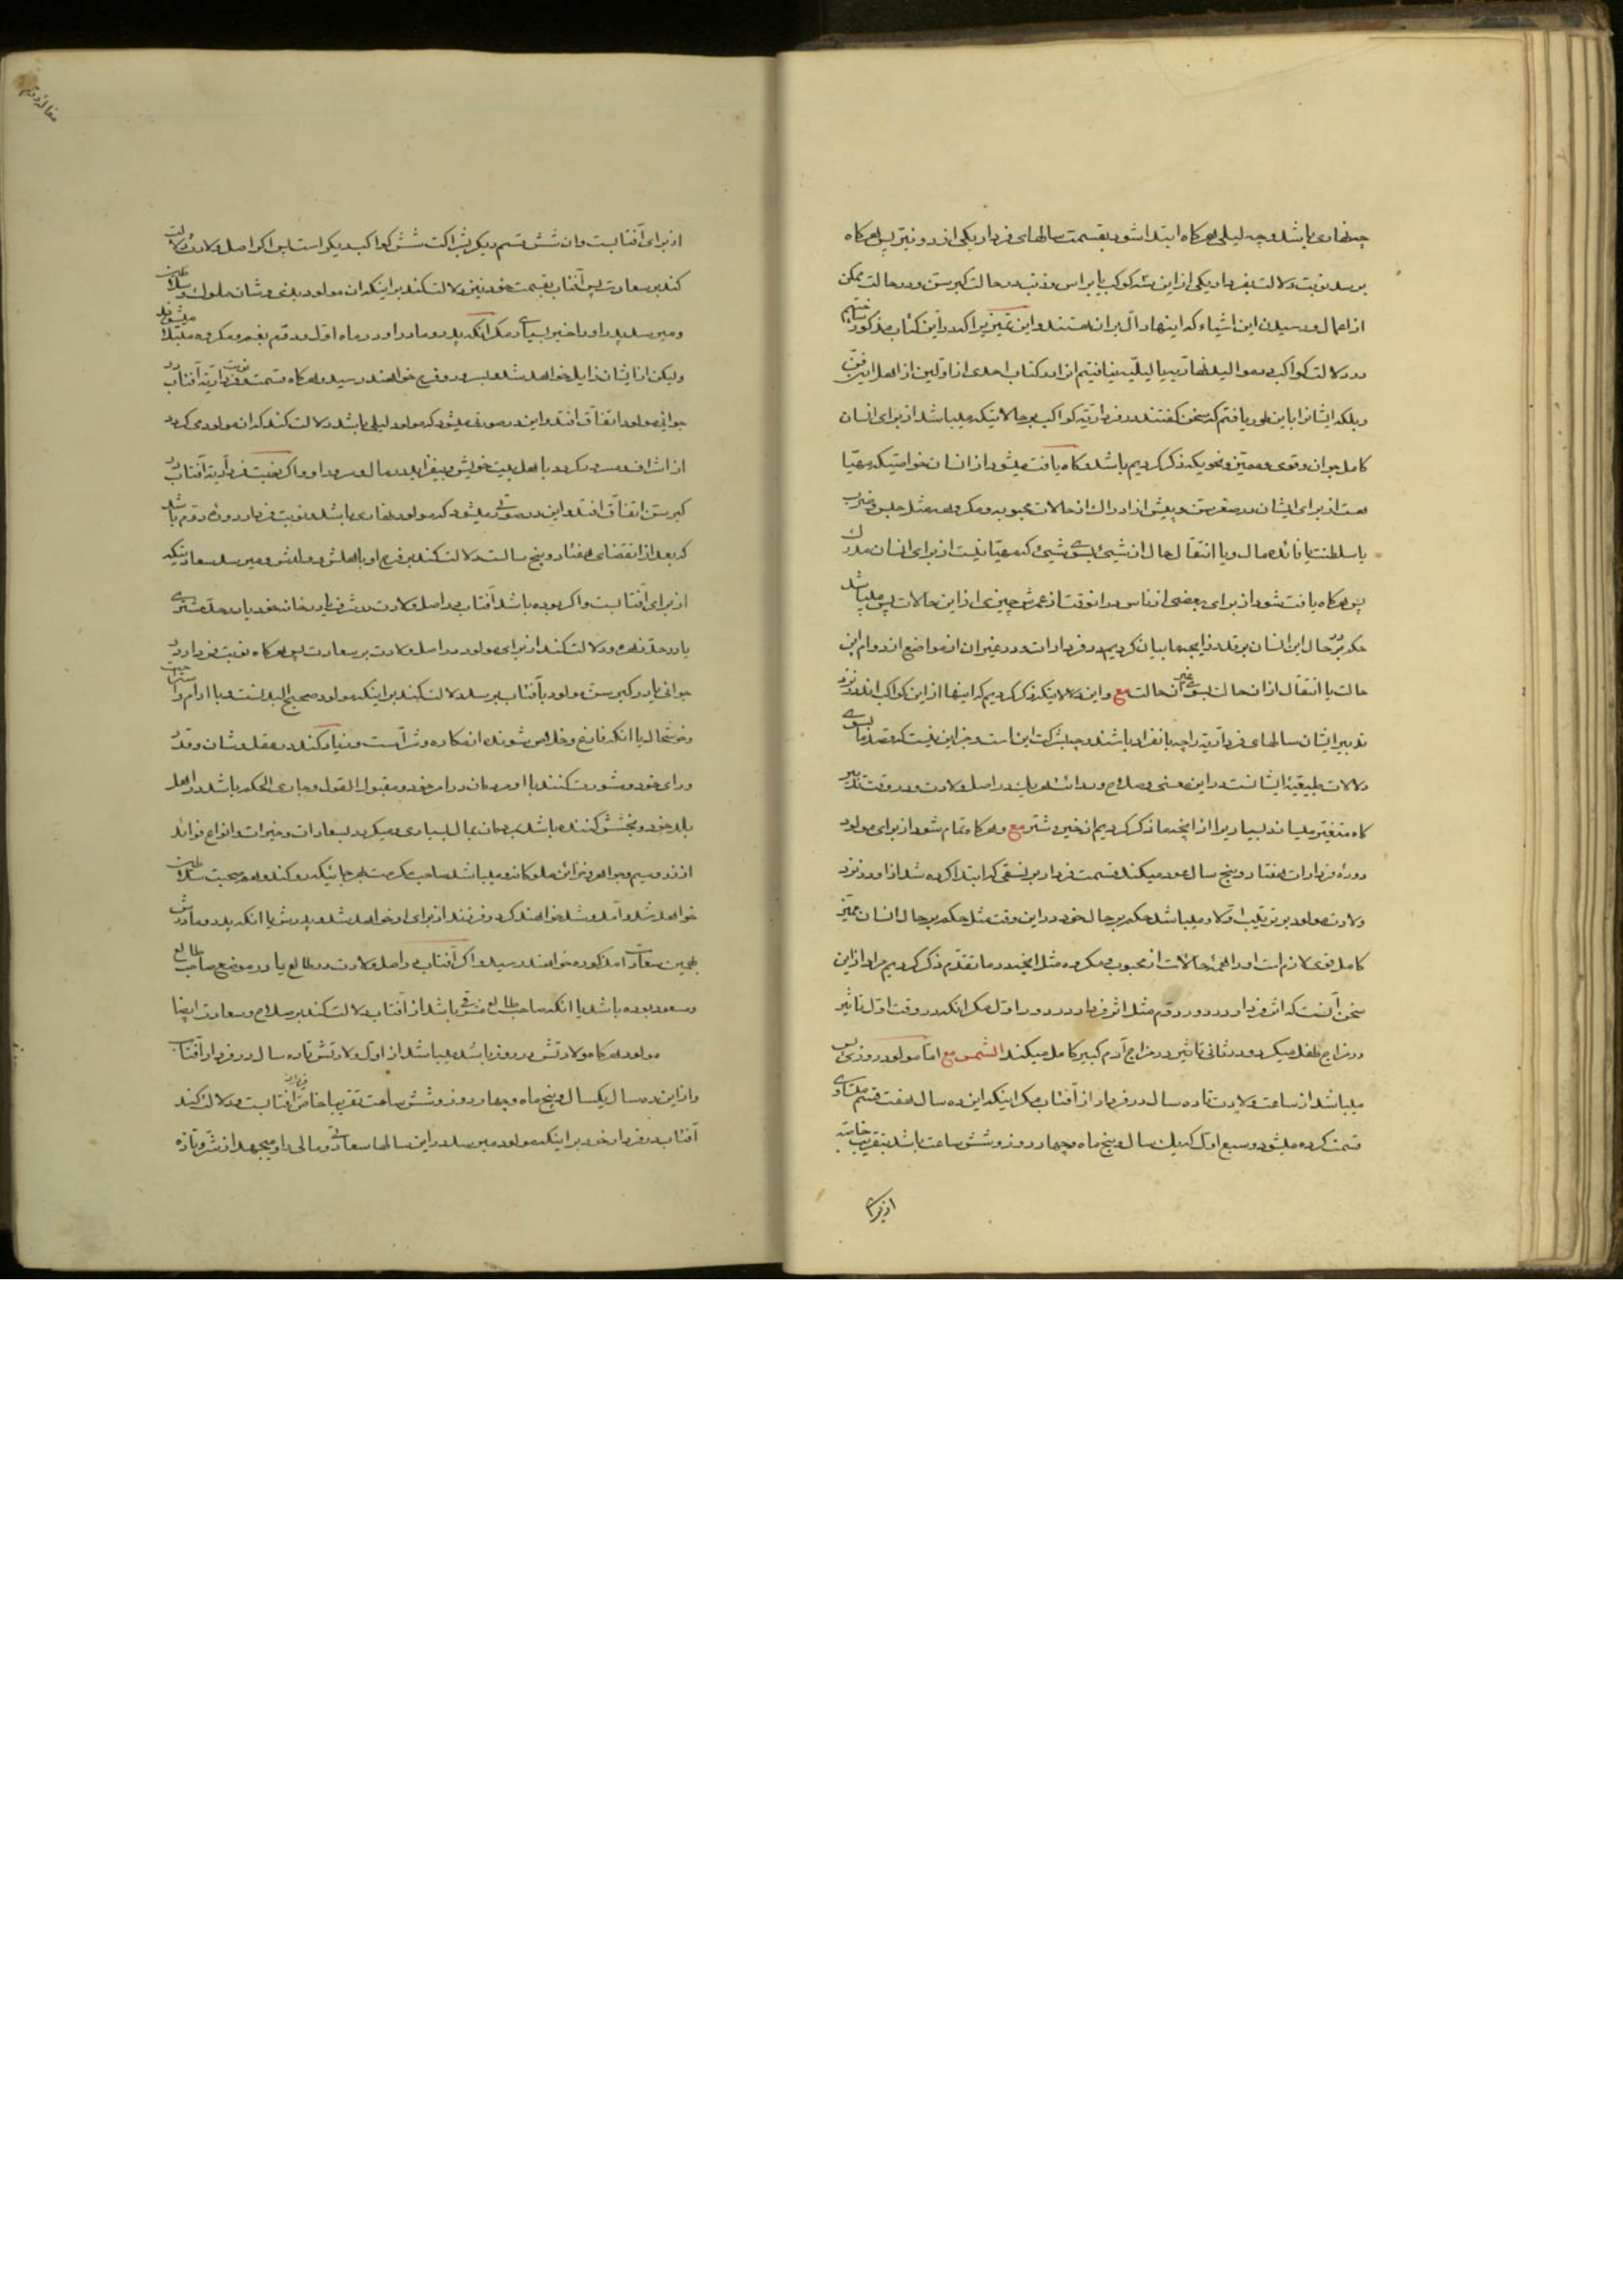 چه نهاری باشد و چه لیلی هرگاه ابتدا شود بقسمت سالهای فردار یکی از دو نیّر پس هرگاه
برسد نوبت دلالت بفردار یکی از این سه کوکب یا براس و ذنب در حالت کبر سن و در حالت تمکن
از اعمال و رسیدن این اشیاء که اینها دالّ بر ان هستند و این تمییز را که در این کتاب مذکور
در دلالت کواکب در موالید نهاریه یا لیلیه نیافتیم انرا در کتاب احدی از اولین از اهل این فن
و بلکه ایشانرا باین طور یافتم که سخن گفتند در فرداریه کواکب بر حالاتیکه میباشد از برای انسان
کامل جوان و قوی و ممیز و نحویکه ذکر کردیم باشد و گاه یافت میشود از انسان خواصیکه مهیا
هست از برای ایشان در صغر سن و پیش از ادراک از حالات محبوبه و مکروهه مثل حبس و ضرب
یا سلطنت یا فائده مال و یا انتقال حال از شیئ بسوی شیئ که مهیا نیست از برای انسان مدرک
پس هرگاه یافت شود از برای بعضی از ناس در انوقت از عمرش چیزی از این حالات پس میباشد
حکم بر حال این انسان بر قدر انچه ما بیان کردیم در فردارات و در غیر ان از مواضع از دوام این
حالت یا انتقال از ان حالت بسوی غیر آن حالت مع و این دلالاتیکه ذکر کردیم که اینها از این کواکب اند در نزد
تدبیر ایشان سالهای فرداریه را چه بانفراد باشند و چه بشرکت این است و جز این نیست که قصد ما بسوی
دلالات طبیعیه ایشانست در این معنی و صلاح و رداءت هر یک در اصل ولادت و در وقت تدبیر
گاه متغیر میسازند بسیاریرا از انچه ما ذکر کردیم از خیر و شر مع و هرگاه تمام شود از برای مولود
دوره فردارات هفتاد و پنج سال عود میکند قسمت فردار بر نسقی که ابتدا کرده شد از او در نزد
ولادت مولود بر ترتیب اول و میباشد حکم بر حال خود در این وقت مثل حکم بر حال انسان ممیز
کامل قوی لازم است او را همه حالات از محبوب و مکروه مثل انچه در ما تقدم ذکر کردیم مراد از این
سخن آنست که اثر فردار در دور دوّم مثل اثر فردار در دور اوّل مگر انکه در وقت اوّل تاثیر
در مزاج طفل میکرد و در ثانی تاثیر در مزاج آدم کبیر کامل میکند الشمس مع امّا مولود روزی پس
میباشد از ساعت ولادت تا ده سال در فردار از آفتاب مگر اینکه این ده سال هفت قسم متساوی
قسمت کرده میشود و سبع اوّل که یک سال و پنج ماه و چهار روز و شش ساعت باشد بتقریب خاصه
از برای
از برای آفتابست و ان شش قسم دیگر بشراکت شش کواکب دیگر است پس اگر اصل ولادت دلالت
کند بر سعادت پس آفتاب بقسمت خود نیز دلالت کند بر اینکه ان مولود بلندی و شان ملوک و سلاطین
و میرسد پدر او را خیر بسیاری مگر انکه پدر و مادر او در ماه اوّل و دوّم بغم و مکروه مبتلا میشوند
ولیکن از ایشان زایل خواهد شد و بسرور و فرح خواهند رسید و هرگاه قسمت نوبت فرداریه آفتاب در
جوانی مولود اتفاق افتد و این در صورتی میشود که مولود لیلی باشد دلالت کند که ان مولود میگردد
از اشراف و مسرور گردد با اهل بیت خویش و بیفزاید در مال و سرور او و اگر نوبت فرداریه آفتاب در
کبر سن اتفاق افتد و این در صورتی میشود که مولود نهاری باشد و نوبت فردار دوره دوّم باشد
که بعد از انقضای هفتاد و پنج سالست دلالت کند بر فرح او باهلش و ولدش و میرسد سعادتیکه
از برای آفتابست و اگر بوده باشد آفتاب در اصل ولادت در شرف یا در خانه خود یا در حدّ مشتری
یا در حدّ زهره و دلالت کند از برای مولود در اصل ولادت بر سعادت پس هرگاه نوبت فردار در
جوانی یا در کبر سن مولود بآفتاب برسد دلالت کند بر اینکه مولود صحیح البدنست با آرام و استراحت
و خوشحال یا انکه فارغ و خلاص شونده از مکاره و شر است و زیاد کند در عقل و شان و قدر
و رای خود و مشورت کنند با او مردمان در امر خود و مقبول القول و جاری الحکم باشد در اهل
بلد خود و بخشش کننده باشد بمردمان بمال بسیاری و میگردد بسعادات و خیرات و انواع فوائد
از زر و سیم و جواهر و خزائن ملوکانه و میباشد صاحب مکرمت بهر جائیکه رو کند و همصحبت سلاطین
خواهد شد و آمد و شد خواهند کرد و فرزند از برای او خواهد شد و پدرش یا انکه پدر و مادرش
بهمین سعادت مذکوره خواهند رسید و اگر آفتاب در اصل ولادت در طالع یا در موضع صاحب طالع
و مسعود بوده باشد یا انکه صاحب طالع مشرقی باشد از آفتاب دلالت کند بر صلاح و سعادت ایضا
مولود هرگاه ولادتش در روز باشد میباشد از اوّل ولادتش تا ده سال در فردار آفتاب
و از این ده سال یکسال و پنج ماه و چهار روز و شش ساعت تقریبا خاص آفتابست و دلالت کند
آفتاب در فردار خود بر اینکه مولود میرسد در این سالها سعادتی و مالی را و میجهد از شر و تازه